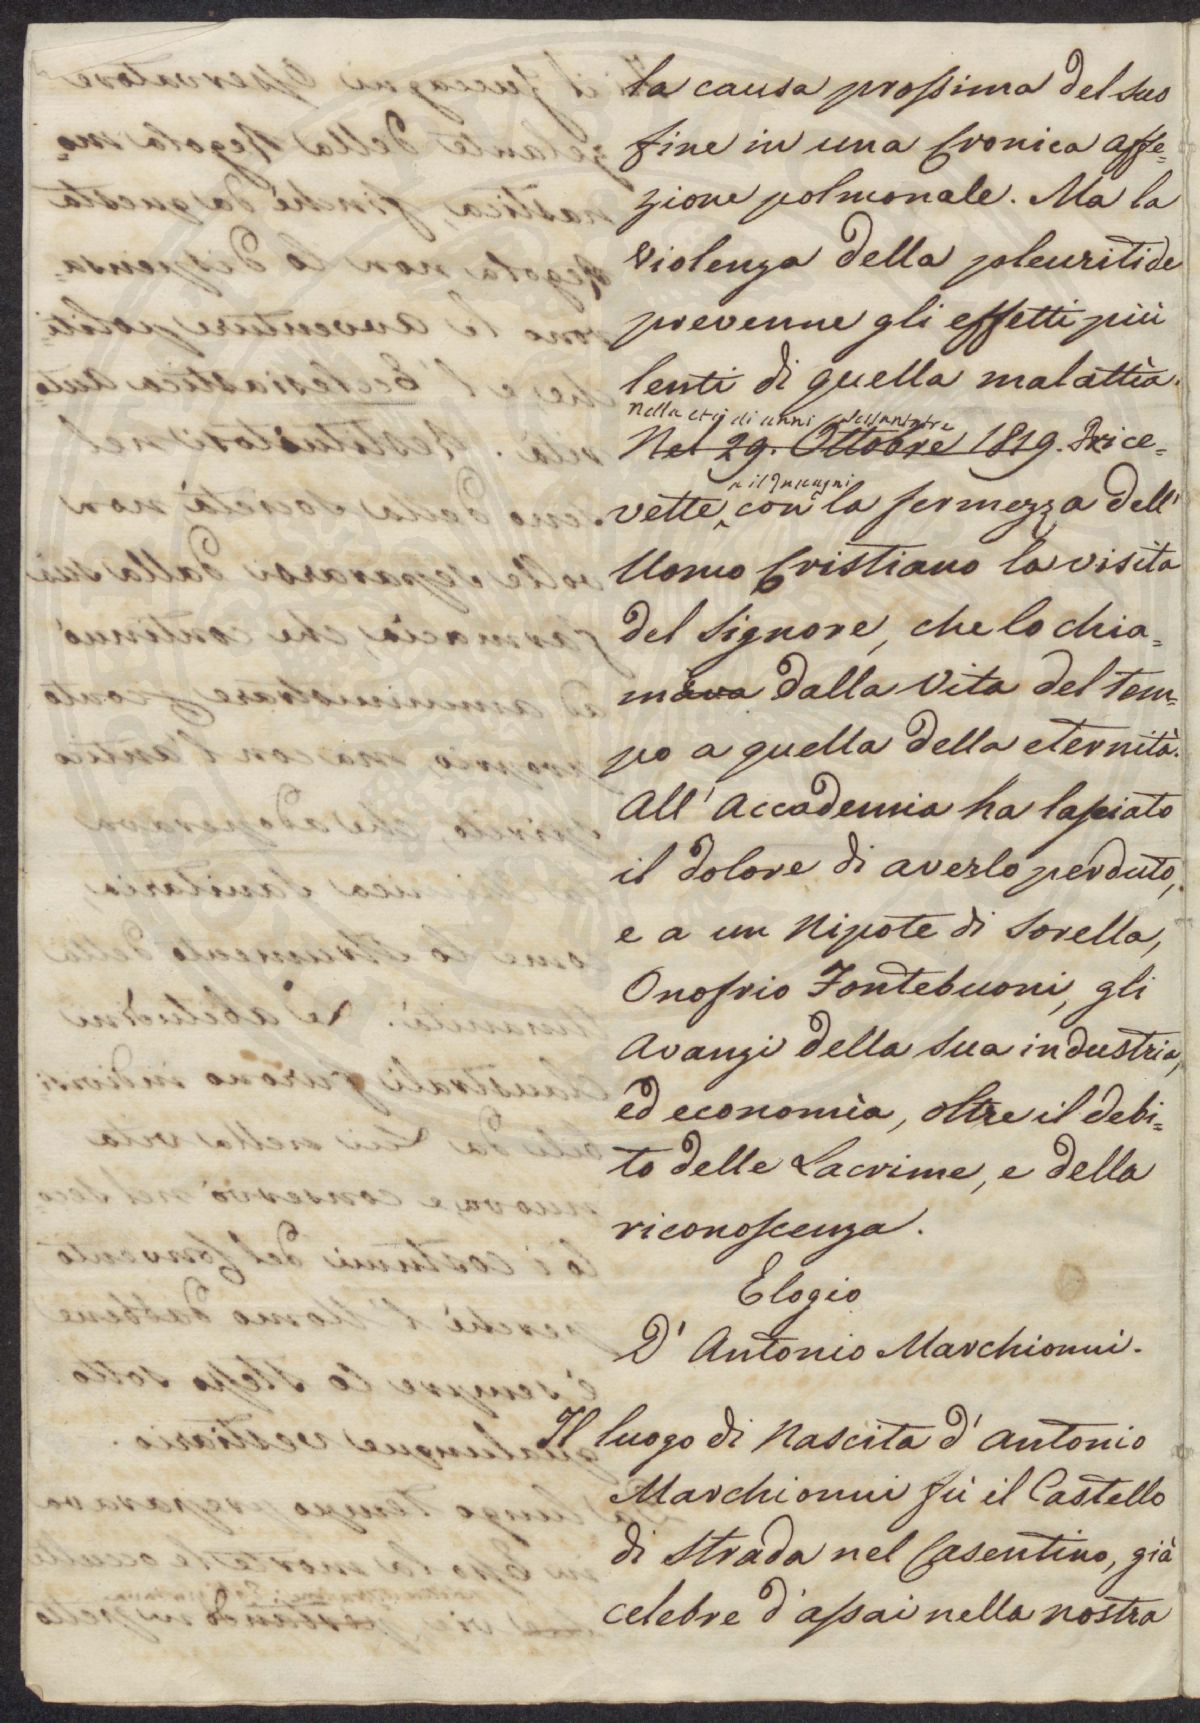 la causa prossima del suo
fine in una Cronica affe=
zione polmonale. Ma la
violenza della pleuritide
prevenne gli effetti più
lenti di quella malattìa.
Nella età di anni sessantatre
Nel 29. Ottobre 1819. Rice=
il Zuccagni
vette con la fermezza dell'
Uomo Cristiano la visita
del Signore, che lo chia=
mava dalla Vita del Tem=
po a quella della eternità.
All' Accademia ha lasciato
il dolore di averlo perduto,
e a un Nipote di Sorella,
Onofrio Fontebuoni, gli
avanzi della sua industria,
ed economìa, oltre il debi=
to delle Lacrime, e della
riconoscenza.
Elogio
D' Antonio Marchionni.
Il luogo di Nascita d' Antonio
Marchionni fù il Castello
di Strada nel Casentino, già
celebre d'assai nella nostra